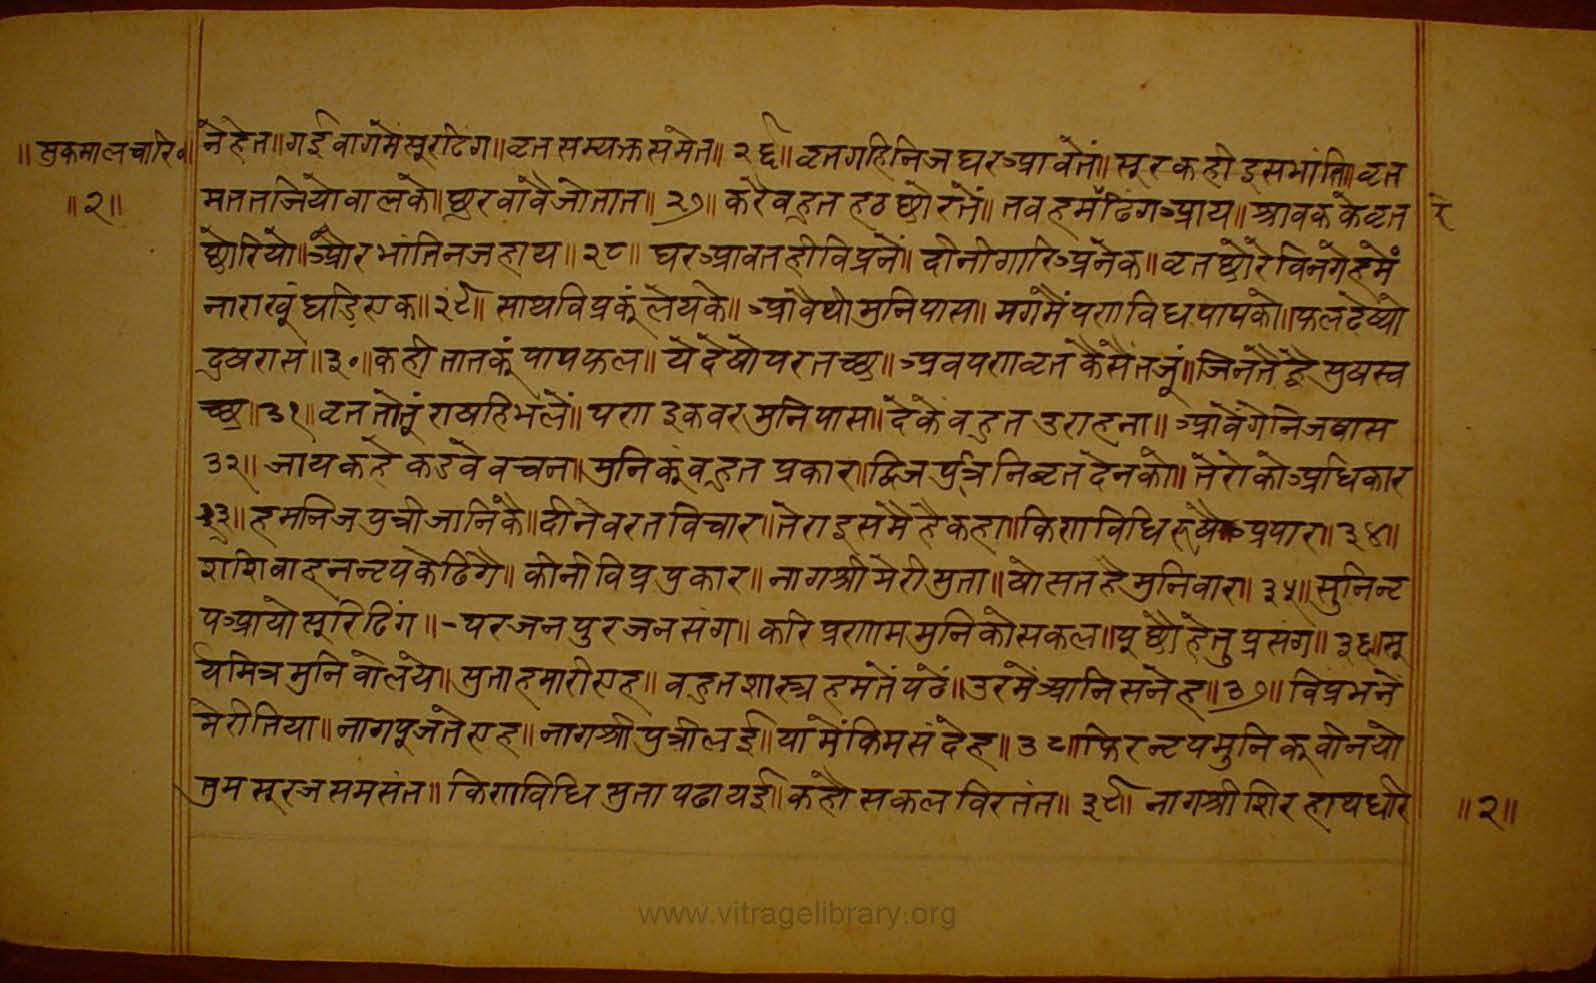 ॥सुकमालचारि॰
॥२॥
नेहेत॥गईवागमेंसूरढिंग॥व्रतसम्यक्तसमेत॥२६॥व्रतगहिनिजघरआवतें॥सूरकहीइसभांति॥व्रत
मततजियोवालके॥छुरवांवैजोतात॥२७॥करैवहुतहठछोरतें॥तवहमढिंगआय॥श्रावककेव्रत
छोरियो॥औरभांतिनजहाय॥२८॥घरआवतहीविप्रनें॥दीनीगारिअनेक॥व्रतछोरेविनगेहमें
नाराखूंघडिएक॥२९॥साथविप्रकूंलेयके॥आवैथोमुनिपास॥मगमैंपणविधपापको॥फलदेष्यो
दुखरास॥३०॥कहीतातकूंपापफल॥येदेषोपरतच्छ॥अवपणव्रतकैसैंतजूं॥जिनतैहैसुषस्व
च्छ॥३१॥व्रततोतूंराषहिभलें॥पणइकवरमुनिपास॥देकेंवहुतउराहना॥आवेंगेनिजवास
३२॥जायकहेकडवेवचन॥मुनिकूंवहुतप्रकार॥द्विजपुत्रनिव्रतदेनको॥तेरोकोअधिकार
३३॥हमनिजपुत्रीजानिंकै॥दीनेवरतविचार॥तेराइसमैहैकहा॥किणविधिरूषैअपार॥३४॥
शशिवाहननृपकेढिंगै॥कीनीविप्रपुकार॥नागश्रीमेरीसुता॥षोसतहैमुनिवार॥३५॥सुनिनृ
पआयोसूरिढिंग॥परजनपुरजनसंग॥करिप्रणाममुनिकोसकल॥पूछौहेतुप्रसंग॥३६॥सू
र्यमित्रमुनिवोलये॥सुताहमारीएह॥वहुतशास्त्रहमतेंपठें॥उरमेंआनिसनेह॥३७॥विप्रभनें
मेरीतिया॥नागपूजतेएह॥नागश्रीपुत्रीलई॥यामेंकिमसंदेह॥३८॥फिरनृपमुनिकूवीनयो
तुमसूरजसमसंत॥किणविधिसुतापढायई॥कहौसकलविरतंत॥३९॥नागश्रीशिरहाथधरि
॥२॥
www.vitragelibrary.org